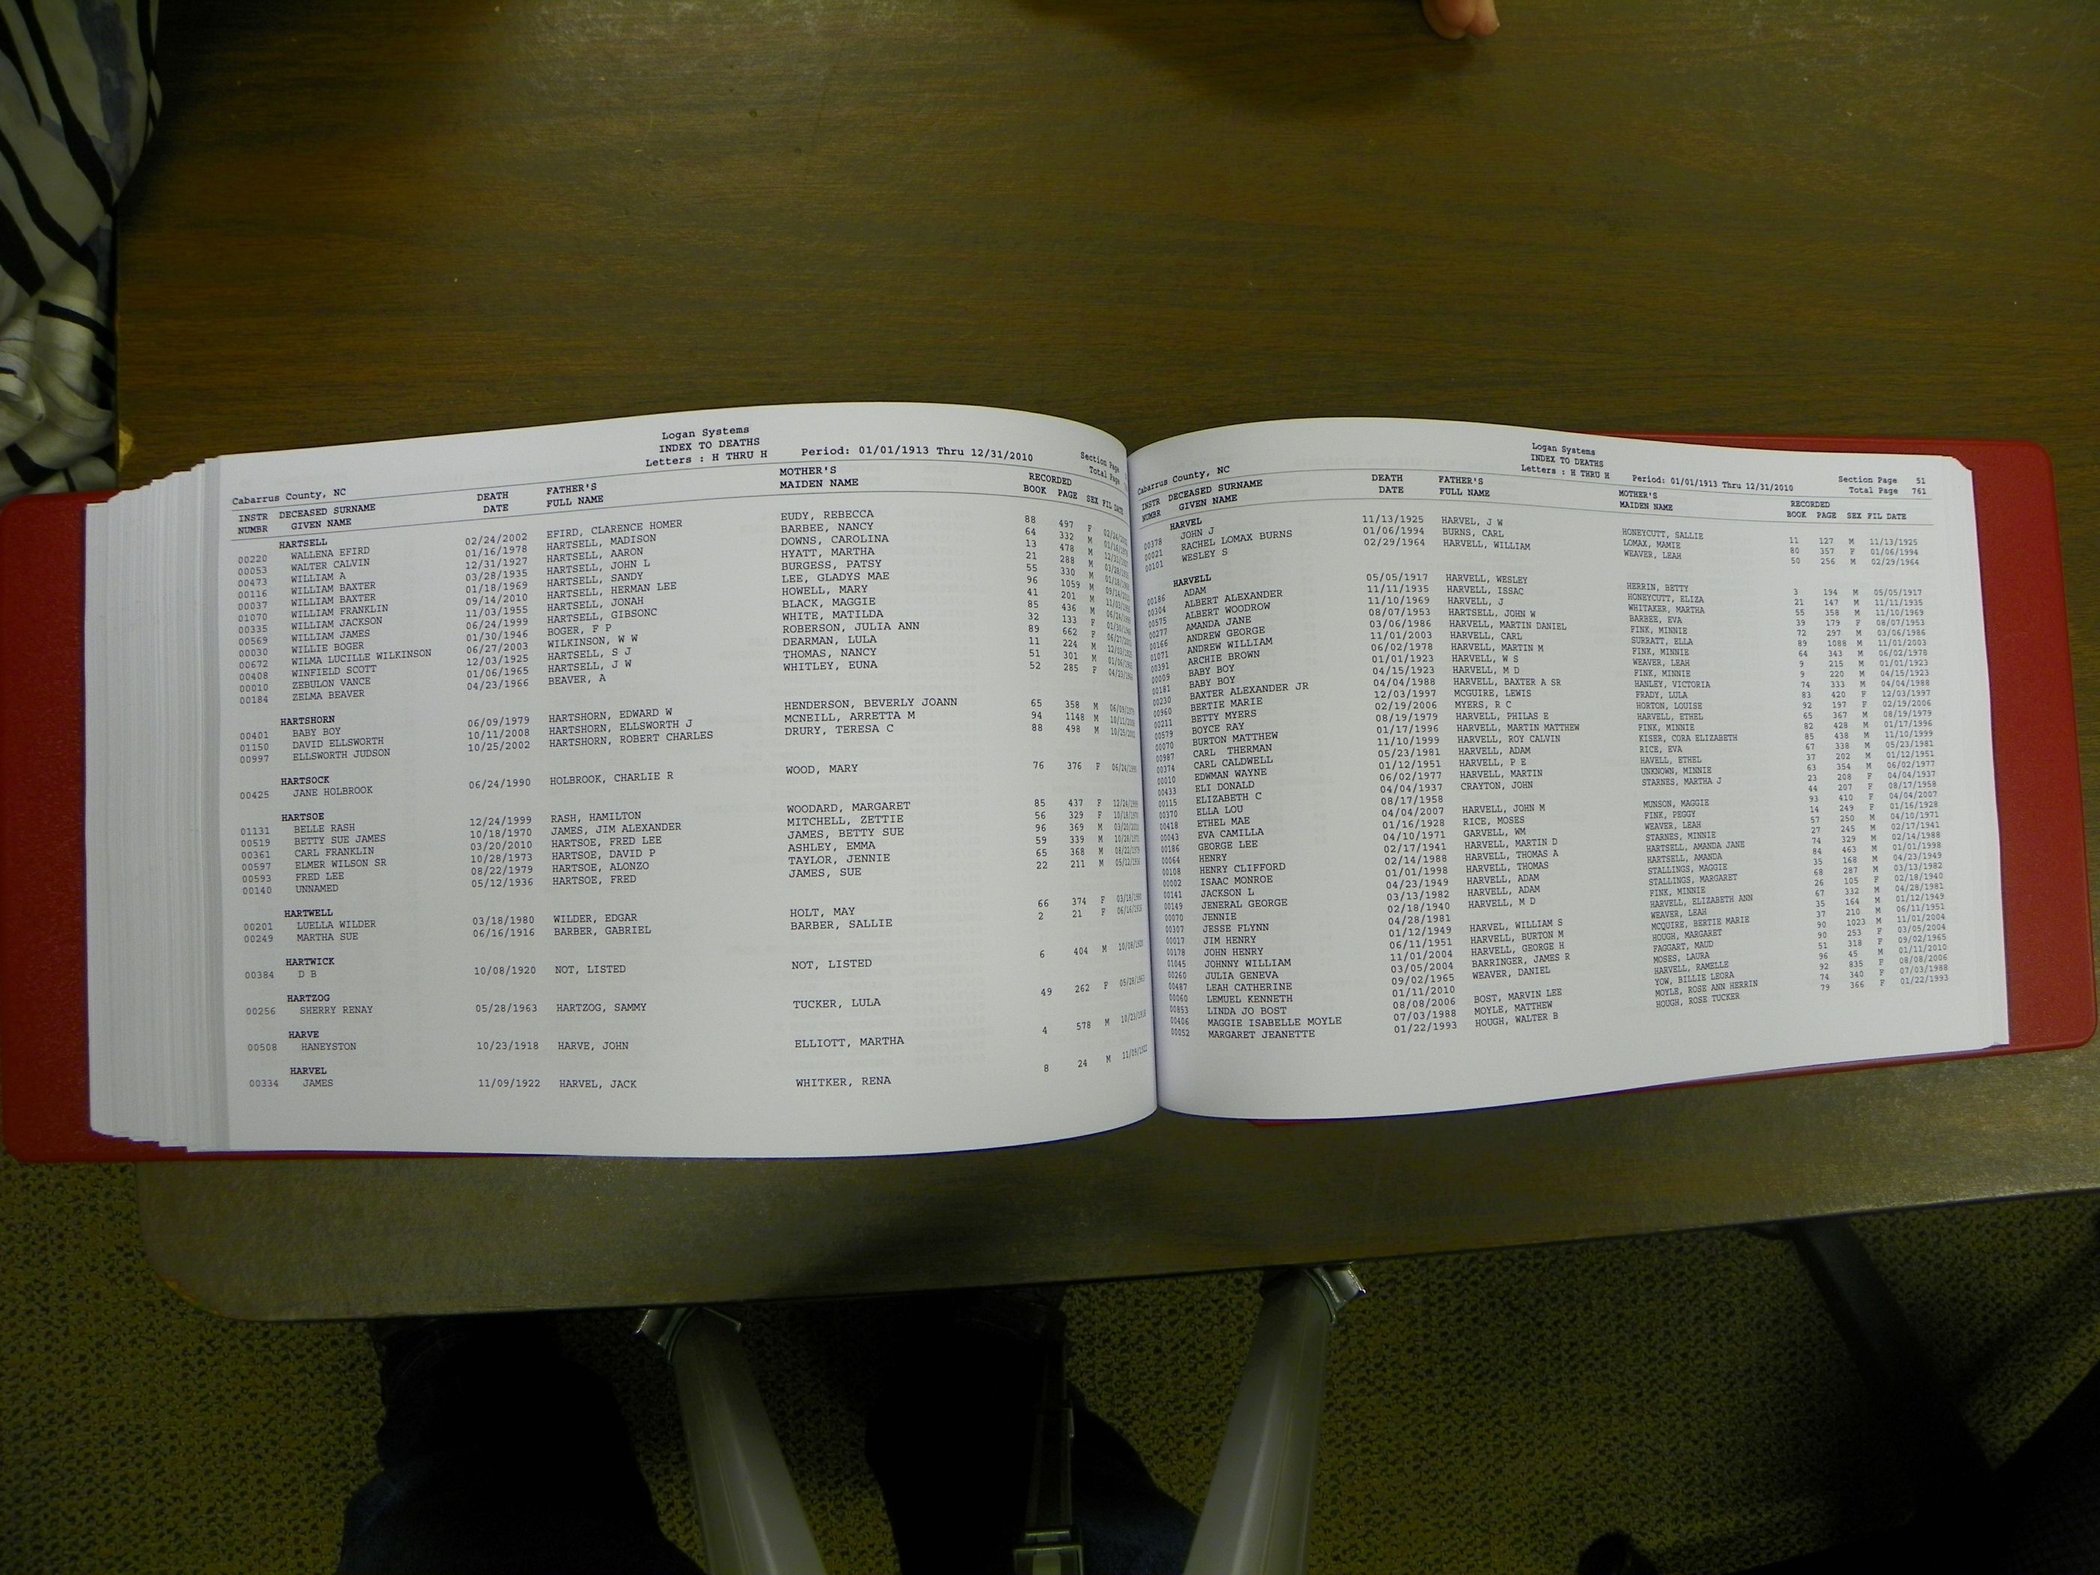 Logan Systems
INDEX TO DEATHS
Letters : H THRU H Period: 01/01/1913 Thru 12/31/2010
Section Page
Total Page
Cabarrus County, NC
INSTR NUMBR DECEASED SURNAME GIVEN NAME DEATH DATE FATHER'S FULL NAME MOTHER'S MAIDEN NAME RECORDED BOOK PAGE SEX FIL DATE
HARTSELL
00220 WALLENA EFIRD 02/24/2002 EFIRD, CLARENCE HOMER EUDY, REBECCA 88 497 F 02/24/2002
00053 WALTER CALVIN 01/16/1978 HARTSELL, MADISON BARBEE, NANCY 64 332 M 01/16/1978
00473 WILLIAM A 12/31/1927 HARTSELL, AARON DOWNS, CAROLINA 13 478 M 12/31/1927
00116 WILLIAM BAXTER 03/28/1935 HARTSELL, JOHN L HYATT, MARTHA 21 288 M 03/28/1935
00037 WILLIAM BAXTER 01/18/1969 HARTSELL, SANDY BURGESS, PATSY 55 330 M 01/18/1969
01070 WILLIAM FRANKLIN 09/14/2010 HARTSELL, HERMAN LEE LEE, GLADYS MAE 96 1059 M 09/14/2010
00335 WILLIAM JACKSON 11/03/1955 HARTSELL, JONAH HOWELL, MARY 41 201 M 11/03/1955
00569 WILLIAM JAMES 06/24/1999 HARTSELL, GIBSONC BLACK, MAGGIE 85 436 M 06/24/1999
00030 WILLIE BOGER 01/30/1946 BOGER, F P WHITE, MATILDA 32 133 F 01/30/1946
00672 WILMA LUCILLE WILKINSON 06/27/2003 WILKINSON, W W ROBERSON, JULIA ANN 89 662 F 06/27/2003
00408 WINFIELD SCOTT 12/03/1925 HARTSELL, S J DEARMAN, LULA 11 224 M 12/03/1925
00010 ZEBULON VANCE 01/06/1965 HARTSELL, J W THOMAS, NANCY 51 301 M 01/06/1965
00184 ZELMA BEAVER 04/23/1966 BEAVER, A WHITLEY, EUNA 52 285 F 04/23/1966
HARTSHORN
00401 BABY BOY 06/09/1979 HARTSHORN, EDWARD W HENDERSON, BEVERLY JOANN 65 358 M 06/09/1979
01150 DAVID ELLSWORTH 10/11/2008 HARTSHORN, ELLSWORTH J MCNEILL, ARRETTA M 94 1148 M 10/11/2008
00997 ELLSWORTH JUDSON 10/25/2002 HARTSHORN, ROBERT CHARLES DRURY, TERESA C 88 498 M 10/25/2002
HARTSOCK
00425 JANE HOLBROOK 06/24/1990 HOLBROOK, CHARLIE R WOOD, MARY 76 376 F 06/24/1990
HARTSOE
01131 BELLE RASH 12/24/1999 RASH, HAMILTON WOODARD, MARGARET 85 437 F 12/24/1999
00519 BETTY SUE JAMES 10/18/1970 JAMES, JIM ALEXANDER MITCHELL, ZETTIE 56 329 F 10/18/1970
00361 CARL FRANKLIN 03/20/2010 HARTSOE, FRED LEE JAMES, BETTY SUE 96 369 M 03/20/2010
00597 ELMER WILSON SR 10/28/1973 HARTSOE, DAVID P ASHLEY, EMMA 59 339 M 10/28/1973
00593 FRED LEE 08/22/1979 HARTSOE, ALONZO TAYLOR, JENNIE 65 368 M 08/22/1979
00140 UNNAMED 05/12/1936 HARTSOE, FRED JAMES, SUE 22 211 M 05/12/1936
HARTWELL
00201 LUELLA WILDER 03/18/1980 WILDER, EDGAR HOLT, MAY 66 374 F 03/18/1980
00249 MARTHA SUE 06/16/1916 BARBER, GABRIEL BARBER, SALLIE 2 21 F 06/16/1916
HARTWICK
00384 D B 10/08/1920 NOT, LISTED NOT, LISTED 6 404 M 10/08/1920
HARTZOG
00256 SHERRY RENAY 05/28/1963 HARTZOG, SAMMY TUCKER, LULA 49 262 F 05/28/1963
HARVE
00508 HANEYSTON 10/23/1918 HARVE, JOHN ELLIOTT, MARTHA 4 578 M 10/23/1918
HARVEL
00334 JAMES 11/09/1922 HARVEL, JACK WHITKER, RENA 8 24 M 11/09/1922
Logan Systems
INDEX TO DEATHS
Letters : H THRU H Period: 01/01/1913 Thru 12/31/2010
Section Page 51
Total Page 761
Cabarrus County, NC
INSTR NUMBR DECEASED SURNAME GIVEN NAME DEATH DATE FATHER'S FULL NAME MOTHER'S MAIDEN NAME RECORDED BOOK PAGE SEX FIL DATE
HARVEL
00378 JOHN J 11/13/1925 HARVEL, J W HONEYCUTT, SALLIE 11 127 M 11/13/1925
00021 RACHEL LOMAX BURNS 01/06/1994 BURNS, CARL LOMAX, MAMIE 80 357 F 01/06/1994
00101 WESLEY S 02/29/1964 HARVELL, WILLIAM WEAVER, LEAH 50 256 M 02/29/1964
HARVELL
00186 ADAM 05/05/1917 HARVELL, WESLEY HERRIN, BETTY 3 194 M 05/05/1917
00304 ALBERT ALEXANDER 11/11/1935 HARVELL, ISSAC HONEYCUTT, ELIZA 21 147 M 11/11/1935
00575 ALBERT WOODROW 11/10/1969 HARVELL, J WHITAKER, MARTHA 55 358 M 11/10/1969
00277 AMANDA JANE 08/07/1953 HARTSELL, JOHN W BARBEE, EVA 39 179 F 08/07/1953
00166 ANDREW GEORGE 03/06/1986 HARVELL, MARTIN DANIEL FINK, MINNIE 72 297 M 03/06/1986
01071 ANDREW WILLIAM 11/01/2003 HARVELL, CARL SURRATT, ELLA 89 1088 M 11/01/2003
00391 ARCHIE BROWN 06/02/1978 HARVELL, MARTIN M FINK, MINNIE 64 343 M 06/02/1978
00009 BABY BOY 01/01/1923 HARVELL, W S WEAVER, LEAH 9 215 M 01/01/1923
00181 BABY BOY 04/15/1923 HARVELL, M D FINK, MINNIE 9 220 M 04/15/1923
00230 BAXTER ALEXANDER JR 04/04/1988 HARVELL, BAXTER A SR HANLEY, VICTORIA 74 333 M 04/04/1988
00960 BERTIE MARIE 12/03/1997 MCGUIRE, LEWIS FRADY, LULA 83 420 F 12/03/1997
00211 BETTY MYERS 02/19/2006 MYERS, R C HORTON, LOUISE 92 197 F 02/19/2006
00579 BOYCE RAY 08/19/1979 HARVELL, PHILAS E HARVELL, ETHEL 65 367 M 08/19/1979
00070 BURTON MATTHEW 01/17/1996 HARVELL, MARTIN MATTHEW FINK, MINNIE 82 428 M 01/17/1996
00987 CARL THERMAN 11/10/1999 HARVELL, ROY CALVIN KISER, CORA ELIZABETH 85 438 M 11/10/1999
00374 CARL CALDWELL 05/23/1981 HARVELL, ADAM RICE, EVA 67 338 M 05/23/1981
00010 EDWMAN WAYNE 01/12/1951 HARVELL, P E HAVELL, ETHEL 37 202 M 01/12/1951
00433 ELI DONALD 06/02/1977 HARVELL, MARTIN UNKNOWN, MINNIE 63 354 M 06/02/1977
00115 ELIZABETH C 04/04/1937 CRAYTON, JOHN STARNES, MARTHA J 23 208 F 04/04/1937
00370 ELLA LOU 08/17/1958 44 207 F 08/17/1958
00418 ETHEL MAE 04/04/2007 HARVELL, JOHN M MUNSON, MAGGIE 93 410 F 04/04/2007
00043 EVA CAMILLA 01/16/1928 RICE, MOSES FINK, PEGGY 14 249 F 01/16/1928
00186 GEORGE LEE 04/10/1971 GARVELL, WM WEAVER, LEAH 57 250 M 04/10/1971
00064 HENRY 02/17/1941 HARVELL, MARTIN D STARNES, MINNIE 27 245 M 02/17/1941
00108 HENRY CLIFFORD 02/14/1988 HARVELL, THOMAS A HARTSELL, AMANDA JANE 74 329 M 02/14/1988
00002 ISAAC MONROE 01/01/1998 HARVELL, THOMAS HARTSELL, AMANDA 84 463 M 01/01/1998
00141 JACKSON L 04/23/1949 HARVELL, ADAM STALLINGS, MAGGIE 35 168 M 04/23/1949
00149 JENERAL GEORGE 03/13/1982 HARVELL, ADAM STALLINGS, MARGARET 68 287 M 03/13/1982
00070 JENNIE 02/18/1940 HARVELL, M D FINK, MINNIE 26 105 F 02/18/1940
00307 JESSE FLYNN 04/28/1981 HARVELL, ELIZABETH ANN 67 332 M 04/28/1981
00017 JIM HENRY 01/12/1949 HARVEL, WILLIAM S WEAVER, LEAH 35 164 M 01/12/1949
00178 JOHN HENRY 06/11/1951 HARVELL, BURTON M MCQUIRE, BERTIE MARIE 37 210 M 06/11/1951
01045 JOHNNY WILLIAM 11/01/2004 HARVELL, GEORGE H HOUGH, MARGARET 90 1023 M 11/01/2004
00260 JULIA GENEVA 03/05/2004 BARRINGER, JAMES R FAGGART, MAUD 90 253 F 03/05/2004
00487 LEAH CATHERINE 09/02/1965 WEAVER, DANIEL MOSES, LAURA 51 318 F 09/02/1965
00060 LEMUEL KENNETH 01/11/2010 HARVELL, RAMELLE 96 45 M 01/11/2010
00853 LINDA JO BOST 08/08/2006 BOST, MARVIN LEE YOW, BILLIE LEORA 92 835 F 08/08/2006
00406 MAGGIE ISABELLE MOYLE 07/03/1988 MOYLE, MATTHEW MOYLE, ROSE ANN HERRIN 74 340 F 07/03/1988
00052 MARGARET JEANETTE 01/22/1993 HOUGH, WALTER B HOUGH, ROSE TUCKER 79 366 F 01/22/1993